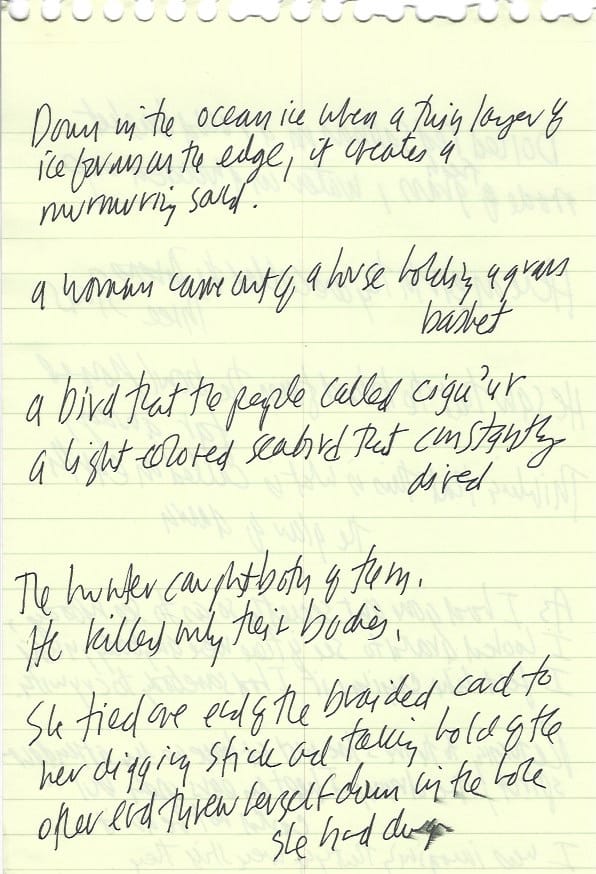 Down in the ocean ice when a thin layer of
ice forms on the edge, it creates a
murmuring sound.
a woman came out of a house holding a grass
basket
a bird that the people called cigu'ur
a light-colored seabird that constantly
dived
The hunter caught both of them.
He killed only their bodies.
She tied one end of the braided cord to
her digging stick and taking hold of the
other end threw herself down in the hole
she had dug